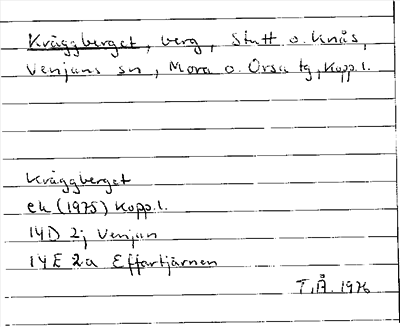 Kräggberget, berg, Stutt o. Knås,
Venjans sn, Mora o. Orsa tg, Kopp. l.
Kräggberget
ek (1975) Kopp. l.
14D 2j Venjan
14E 2a Effartjärnen
T.Å. 1976